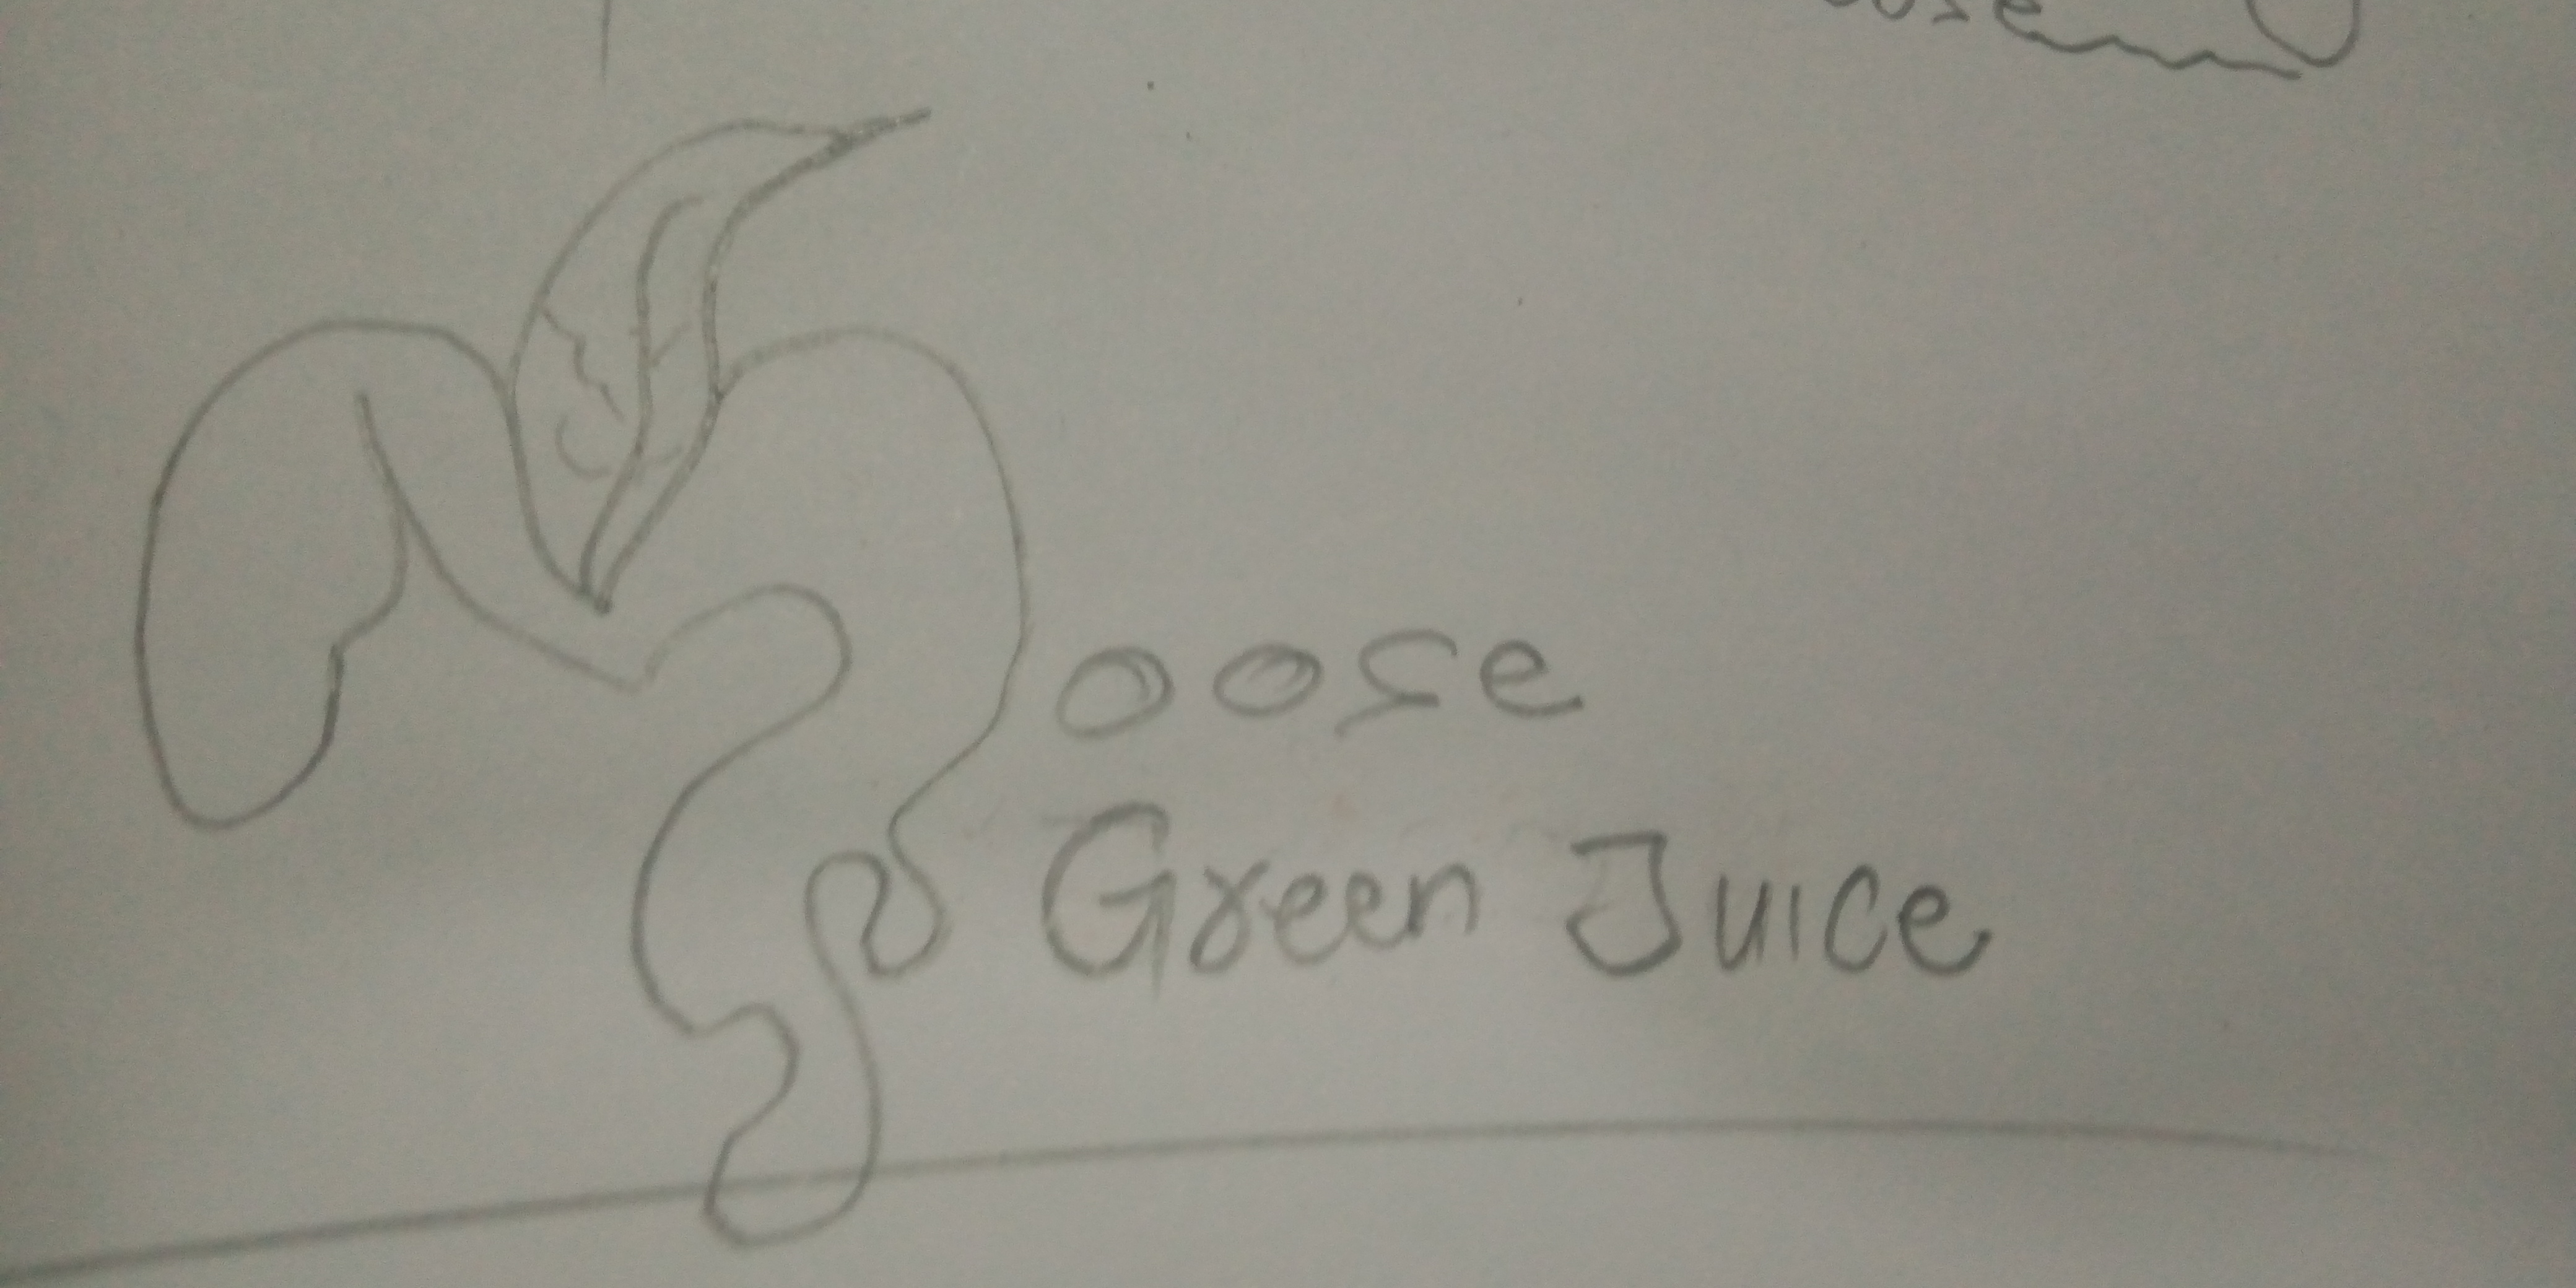 oose
Green Juice